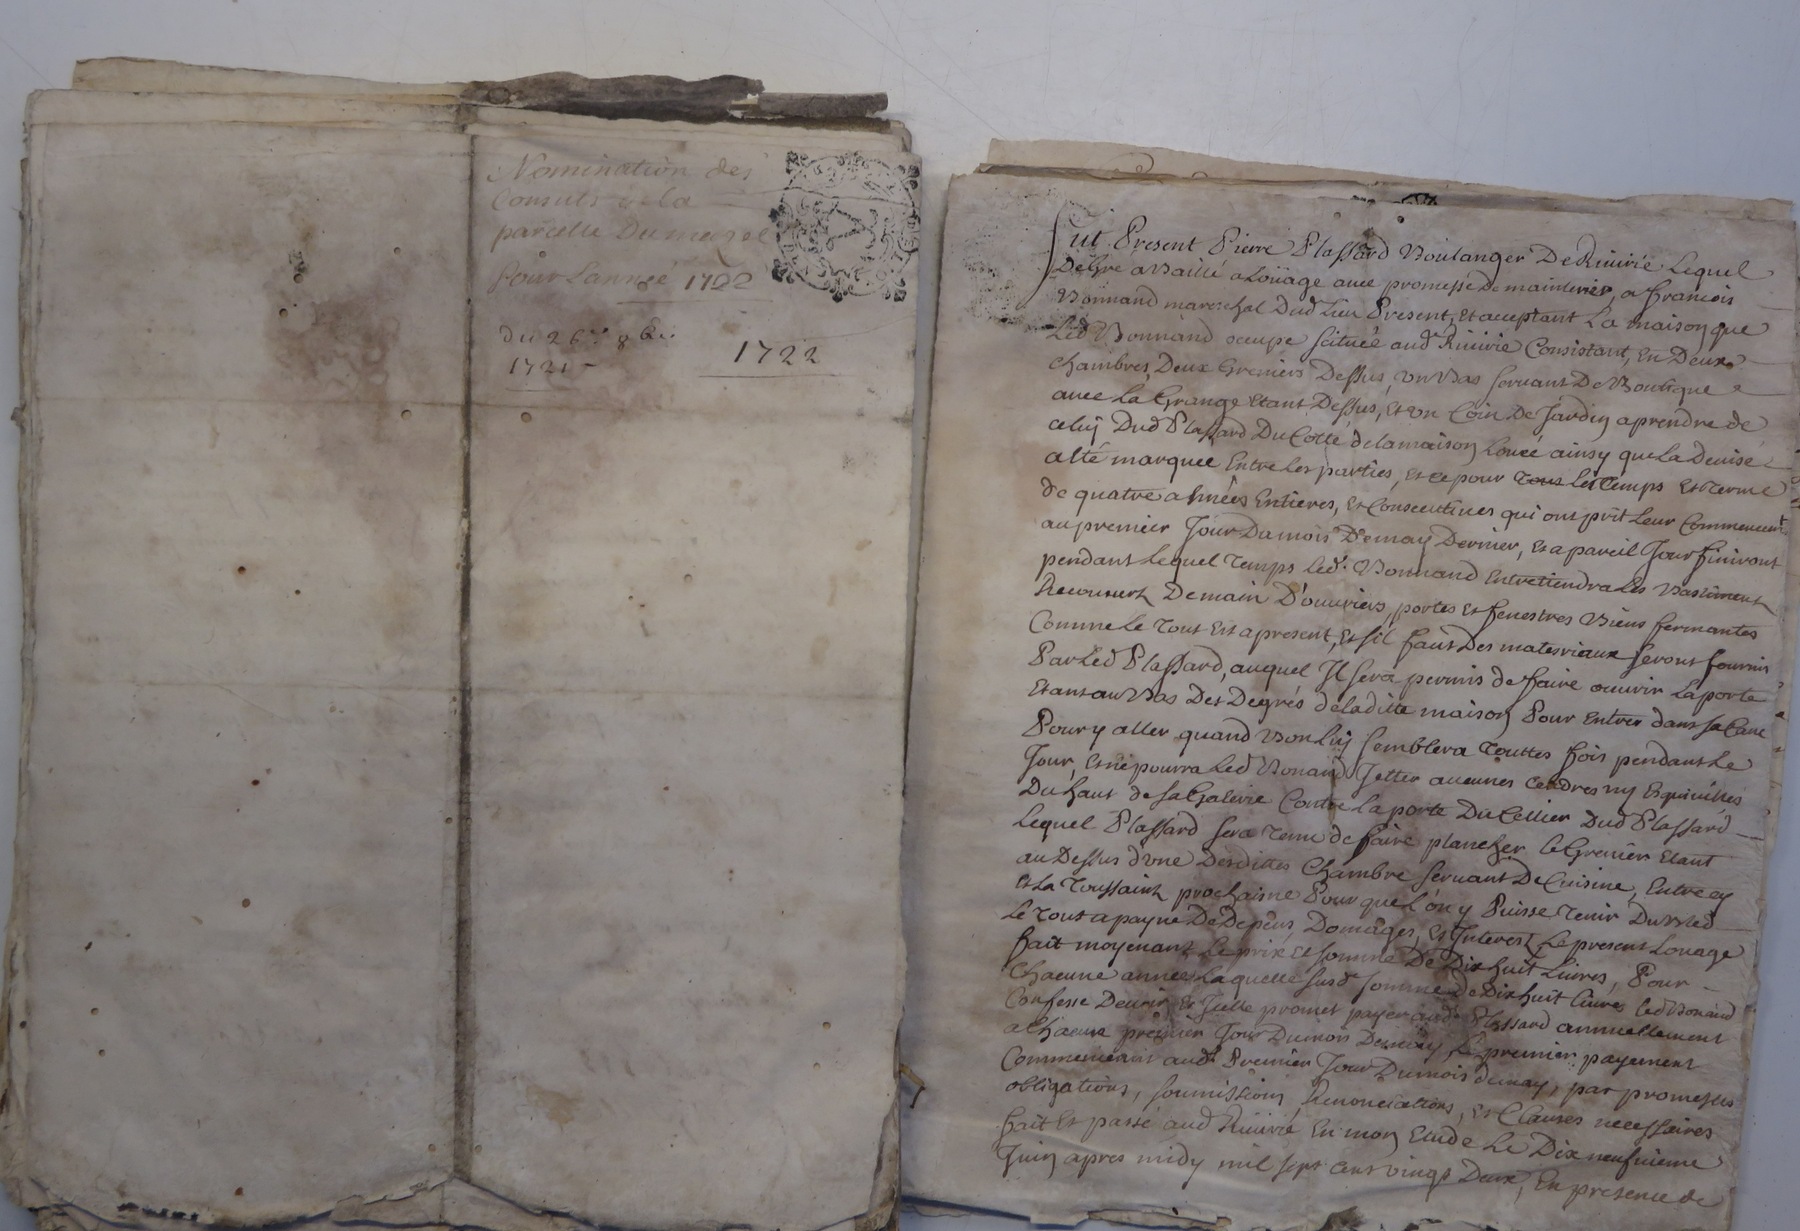 Nomination des
Consuls de la
parcelle Dumazel
Pour Lannée 1722
du 26e 8bre
1721
1722
fut Present Pierre Plassard Boulanger De Riuirie Lequel
DeGre a Baillé a Loüage auec promesse De maintenir, a francois
Bonnand mareschal Dud Lieu Present, et acceptant La maison que
Led Bonnand occupe scituée aud Riuirie Consistant, En Deux
chambres, Deux Greniers Dessus, Vn Bas seruant De Boutique
auec La Grange Etant Dessus, et vn Coin De Jardin aprendre de
celuy Dud Plassard Du Cotté de lamaison Loüée ainsy que La Deuise
a Esté marquée Entre Les parties, et ce pour Les Temps Et Terme
de quatre années Entieres, et Consecutiues qui ont prit Leur Commencemt
au premier Jour Du mois De may Dernier, et a pareil Jour finiront
pendant Lequel Temps Led. Bonnand Entretiendra Les Bastiments
Recouuert De main D'ouuriers, portes et fenestres Biens fermantes
Comme Le Tout Est apresent, et sil faut Des materiaux seront fournis
Par Led Plassard, auquel Il sera permis de faire ouurir La porte
Etant au Bas Des Degrés de laditte maison Pour Entrer dans sa Caue
Pour y aller quand Bon Luy semblera Touttes fois pendant Le
Jour, et ne pourra Led Bonand Jetter aucunes Cendres ny
Du haut de sa Galerie Contre La porte Du Cellier Dud Plassard
Lequel Plassard sera Tenu de faire plancher Le Grenier Etant
au Dessus d'vne Desdittes Chambre seruant De Cuisine, Entre cy
et La Toussaint prochaine Pour que L'on y Puisse Tenir Du Bled
Le Tout a payne De Depens, Domages, et Interest Le present Loüage
fait moyenant Le prix et somme De Dix huit Liures, Pour
Chacune année Laquelle susd somme De Dix huit Liures led Bonand
Confesse Deuoir, et Icelle promet payer aud. Plassard annuellement
a Chacun premier Jour Du mois De may, Le premier payement
Commencant aud Premier Jour Du mois de may, par promesses
obligations, soumissions Renonciations, et Clauses necessaires
fait et passé aud Riuirié En mon Etude Le Dix neufuieme
Juin apres midy mil sept cent vingt Deux, En presence de